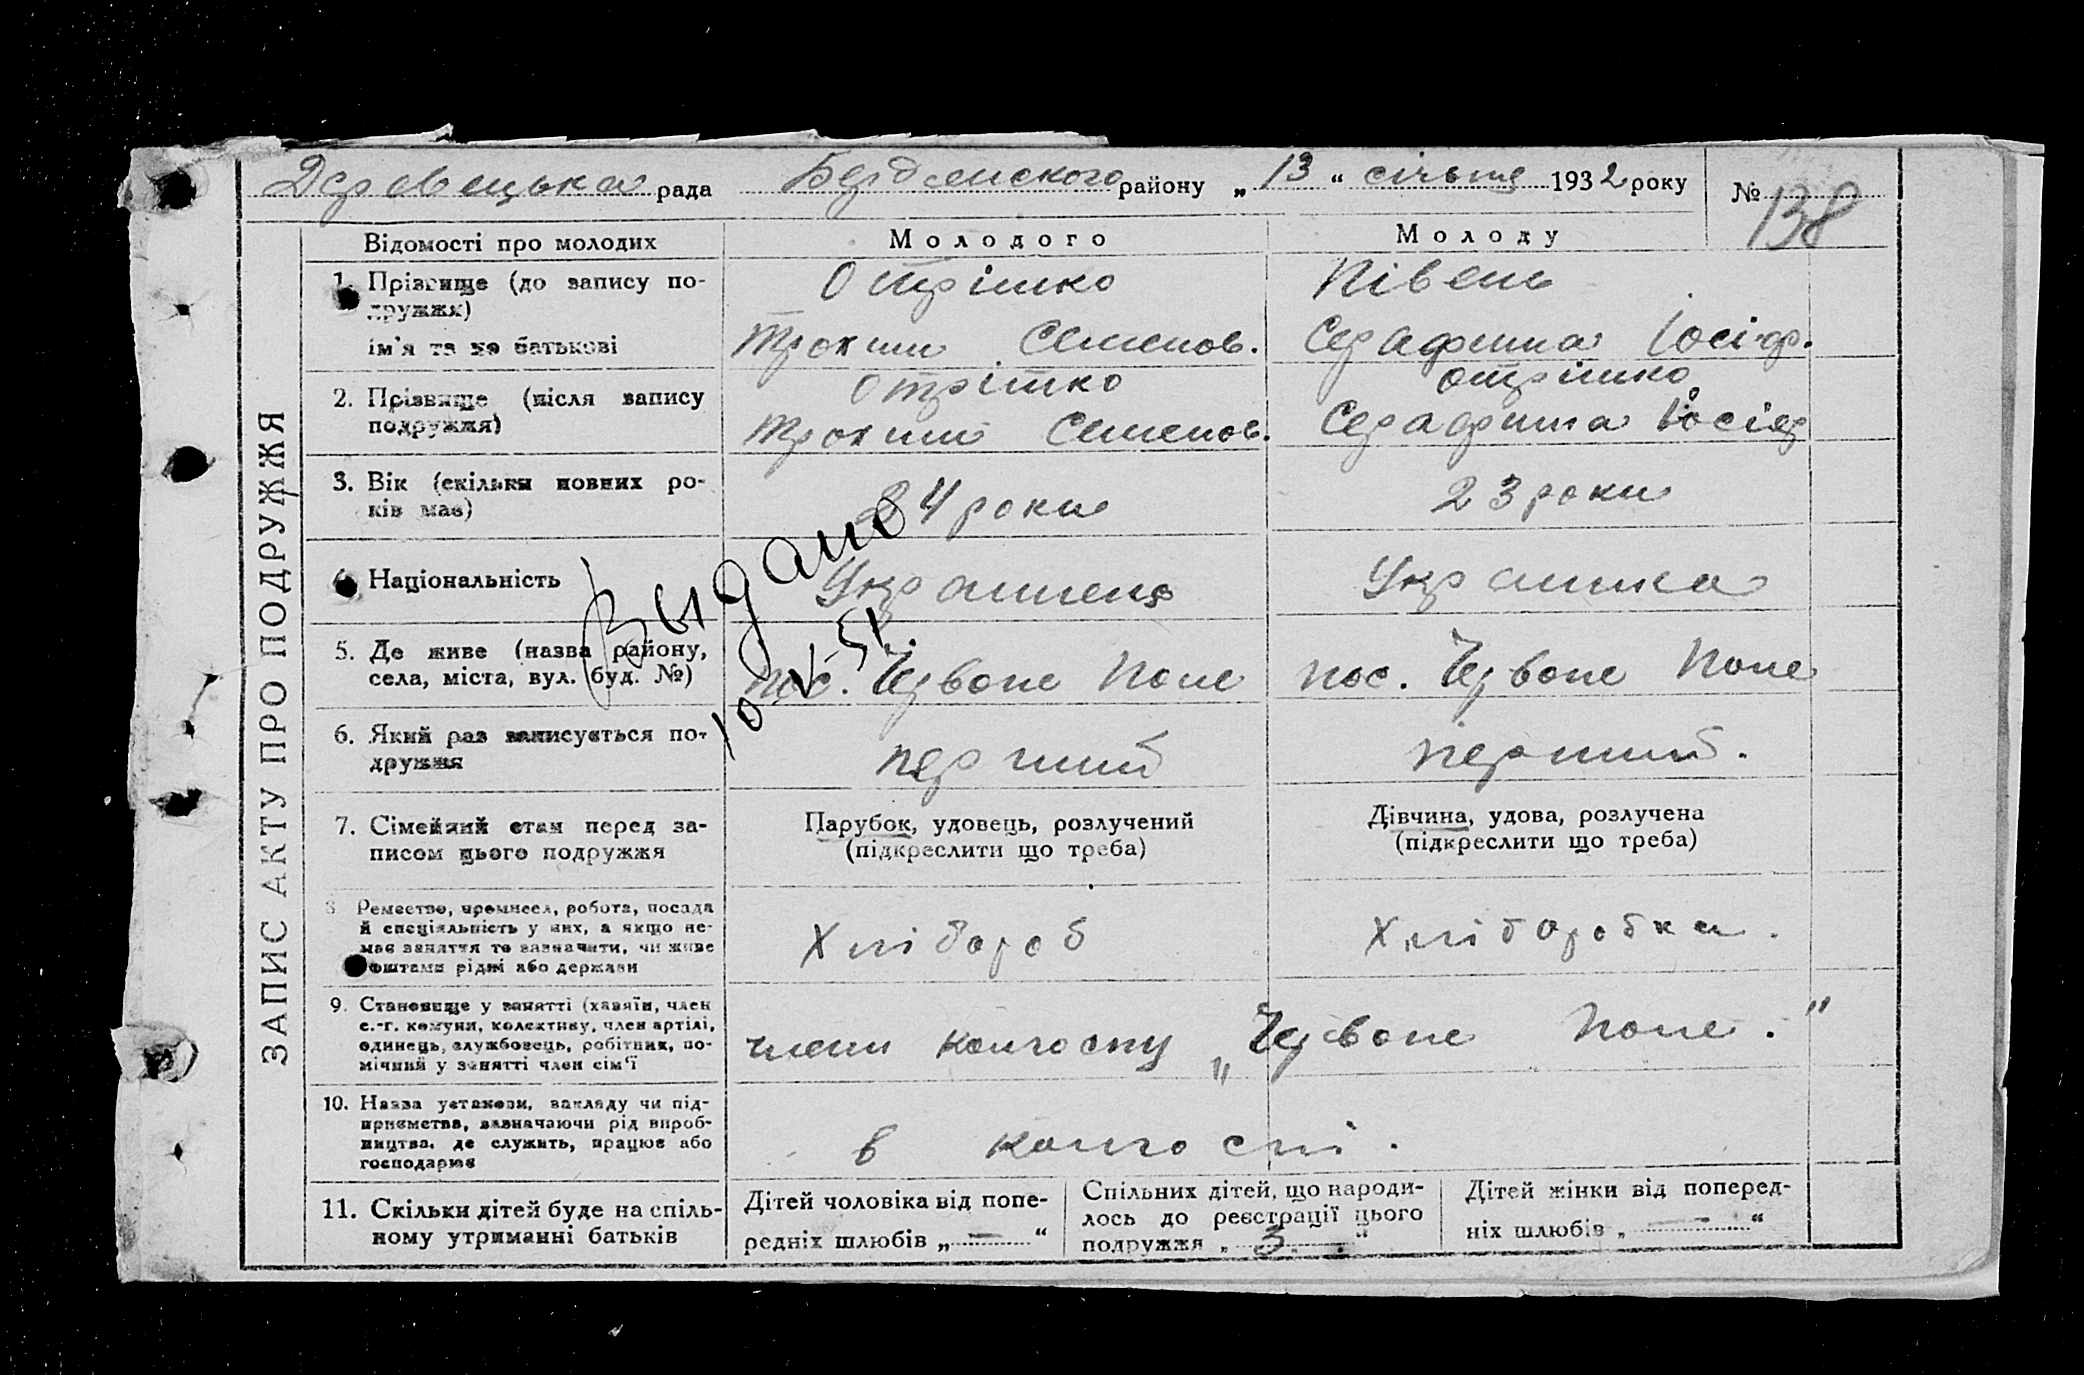 Деровецька рада Бердянського району „13“ січня 1932 року № 138
ЗАПИС АКТУ ПРО ПОДРУЖЖЯ
Відомості про молодих Молодого Молоду
1. Прізвище (до запису по- Отрішко Півень
дружжя)
ім'я та по батькові Трохим Семенов. Серафима Іосіф.
2. Прізвище (після запису Отрішко Отрішко
подружжя) Трохим Семенов. Серафима Іосіф
3. Вік (скільки повних ро- 24 роки 23 роки
ків має)
4. Національність Українець Українка
Выдано
10-V-51.
5. Де живе (назва району, пос. Червоне Поле пос. Червоне Поле
села, міста, вул. буд. №)
6. Який раз записується по- перший перший.
дружжя
7. Сімейний стан перед за- Парубок, удовець, розлучений Дівчина, удова, розлучена
писом цього подружжя (підкреслити що треба) (підкреслити що треба)
8 Ремество, промисел, робота, посада
й спеціяльність у них, а якщо не- Хлібороб Хліборобка.
має заняття то зазначити, чи живе
коштами рідні або держави
9. Становище у занятті (хазяїн, член
с.-г. комуни, колективу, член артілі,
одинець, службовець, робітник, по- члени колгоспу „Червоне Поле."
мічний у занятті член сім'ї
10. Назва установи, закладу чи під-
приємства, зазначаючи рід вироб-
ництва, де служить, працює або в колгоспі.
господарює
11. Скільки дітей буде на спіль-
ному утриманні батьків
Дітей чоловіка від попе-
редніх шлюбів „—“
Спільних дітей, що народи-
лось до реєстрації цього
подружжя „3.“
Дітей жінки від поперед-
ніх шлюбів „—“